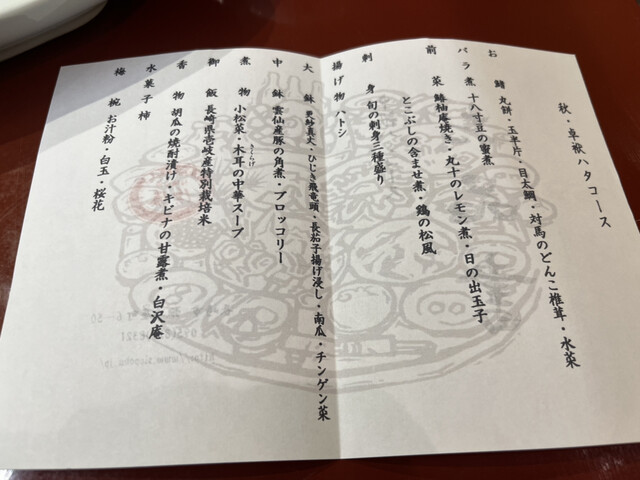 秋・卓袱ハタコース
お鰭 丸餅・玉半片・目太鯛・対馬のどんこ椎茸・水菜
バラ煮 十八寸豆の蜜煮
前菜 鰆柚庵焼き・丸十のレモン煮・日の出玉子
とこぶしの含ませ煮・鶏の松風
刺身 旬の刺身三種盛り
揚げ物 ハトシ
大鉢 ひじき飛竜頭・長茄子揚げ浸し・南瓜・チンゲン菜
中鉢 雲仙産豚の角煮・ブロッコリー
煮物 小松菜・木耳の中華スープ
きくらげ
御飯 長崎県壱岐産特別栽培米
香物 胡瓜の焼酎漬け・キビナの甘露煮・白沢庵
水菓子 柿
梅椀 お汁粉・白玉・桜花